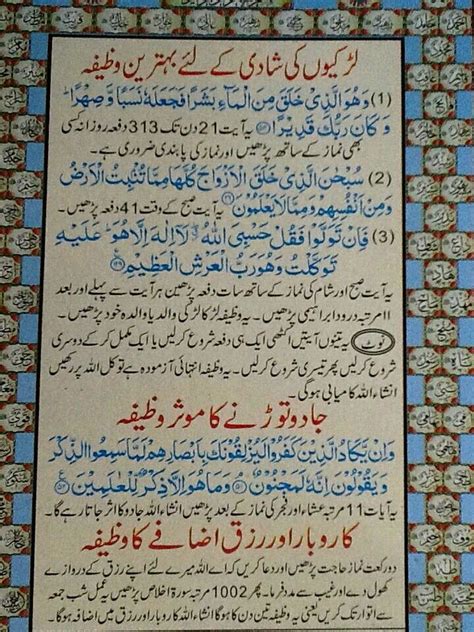 لڑکیوں کی شادی کے لئے بہترین وظیفہ
(1) وَهُوَ الَّذِىْ خَلَقَ مِنَ الْمَآءِ بَشَرًا فَجَعَلَهٗ نَسَبًا وَّصِهْرًا ؕ
وَكَانَ رَبُّكَ قَدِيْرًا ۝ یہ آیت 21 دن تک 313 دفعہ روزانہ کسی
بھی نماز کے ساتھ پڑھیں اور نماز کی پابندی ضروری ہے۔
(2) سُبْحٰنَ الَّذِىْ خَلَقَ الْاَزْوَاجَ كُلَّهَا مِمَّا تُنْۢبِتُ الْاَرْضُ
وَمِنْ اَنْفُسِهِمْ وَمِمَّا لَا يَعْلَمُوْنَ ۝ یہ آیت صبح کے وقت 41 دفعہ پڑھیں۔
(3) فَاِنْ تَوَلَّوْا فَقُلْ حَسْبِىَ اللّٰهُ ۖ لَاۤ اِلٰهَ اِلَّا هُوَ ؕ عَلَيْهِ
تَوَكَّلْتُ وَهُوَ رَبُّ الْعَرْشِ الْعَظِيْمِ ۝
یہ آیت صبح اور شام کی نماز کے ساتھ سات دفعہ پڑھیں ہر آیت سے پہلے اور بعد
۱۱ مرتبہ درود ابراہیمی پڑھیں۔ یہ وظیفہ لڑکا لڑکی والد یا والدہ خود پڑھیں۔
نوٹ یہ تینوں آیتیں اکٹھی ایک ہی دفعہ شروع کرلیں یا ایک مکمل کرکے دوسری
شروع کرلیں پھر تیسری شروع کرلیں۔ یہ وظیفہ انتہائی آزمودہ ہے توکل اللہ پر رکھیں
انشاءاللہ کامیابی ہوگی۔
جادو توڑنے کا موثر وظیفہ
وَاِنْ يَّكَادُ الَّذِيْنَ كَفَرُوْا لَيُزْلِقُوْنَكَ بِاَبْصَارِهِمْ لَمَّا سَمِعُوا الذِّكْرَ
وَيَقُوْلُوْنَ اِنَّهٗ لَمَجْنُوْنٌ ۝ وَمَا هُوَ اِلَّا ذِكْرٌ لِّلْعٰلَمِيْنَ ۝
یہ آیات 11 مرتبہ عشاء اور فجر کی نماز کے بعد پڑھیں انشاءاللہ جادو کا اثر جاتا رہے گا۔
کاروبار اور رزق اضافے کا وظیفہ
دو رکعت نماز حاجت پڑھیں اور دعا کریں کہ اے اللہ میرے لئے اپنے رزق کے دروازے
کھول دے اور غیب سے مدد فرما۔ پھر 1002 مرتبہ سورۃ اخلاص پڑھیں یہ عمل شب جمعہ
سے اتوار تک کریں یعنی یہ وظیفہ تین دن کا ہوگا انشاءاللہ کاروبار اور رزق میں اضافہ ہوگا۔